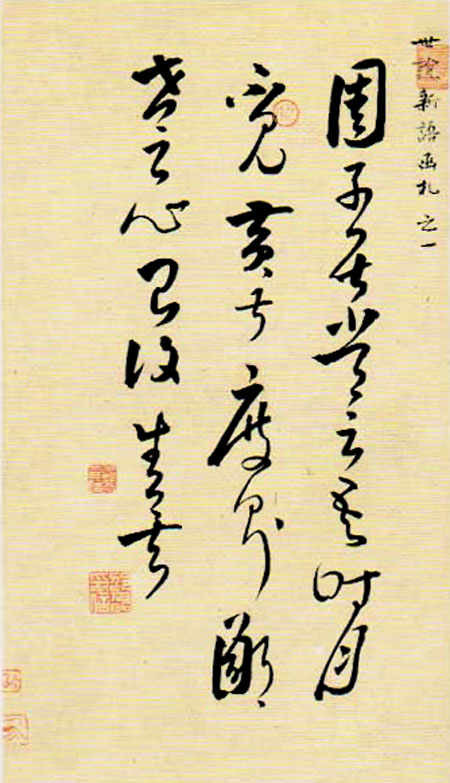 世說新語函札 之一
周子居常云吾时月
不見黃叔度則鄙
吝之心已復生矣